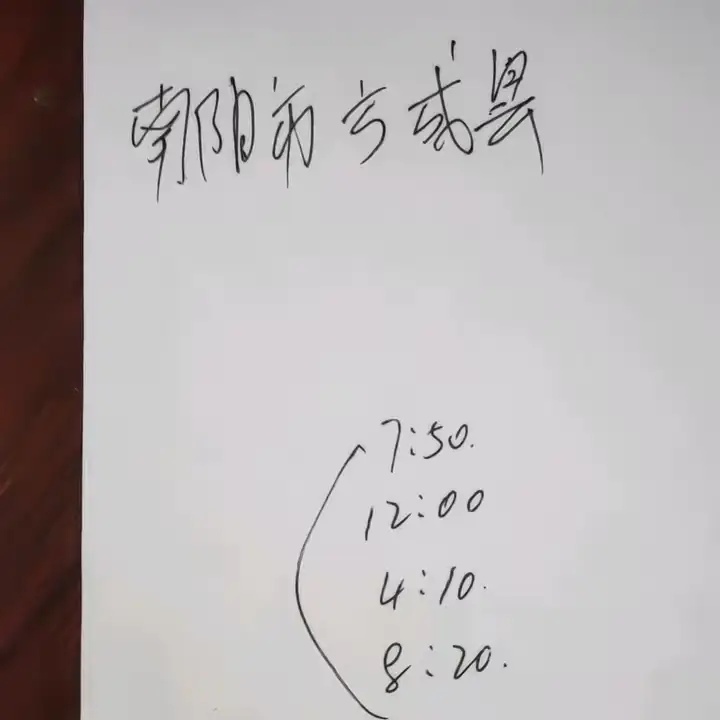 南阳市方城县
7:50.
12:00
4:10.
8:20.